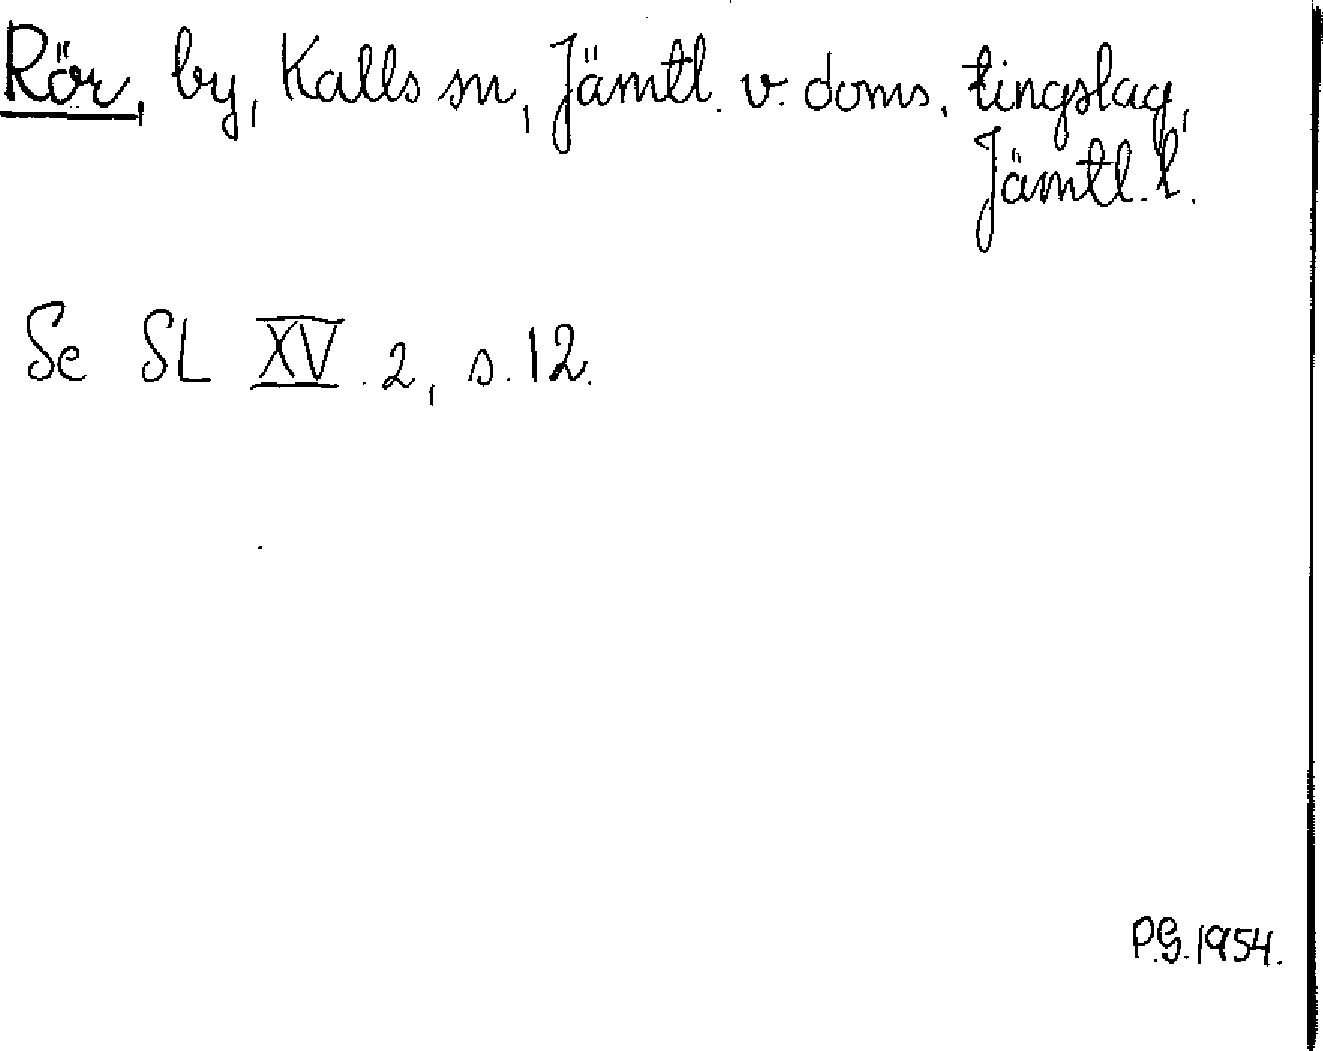 Rör, by, Kalls sn, Jämtl. v. doms. tingslag,
Jämtl. l.
Se SL XV. 2, s. 12.
P.G. 1954.